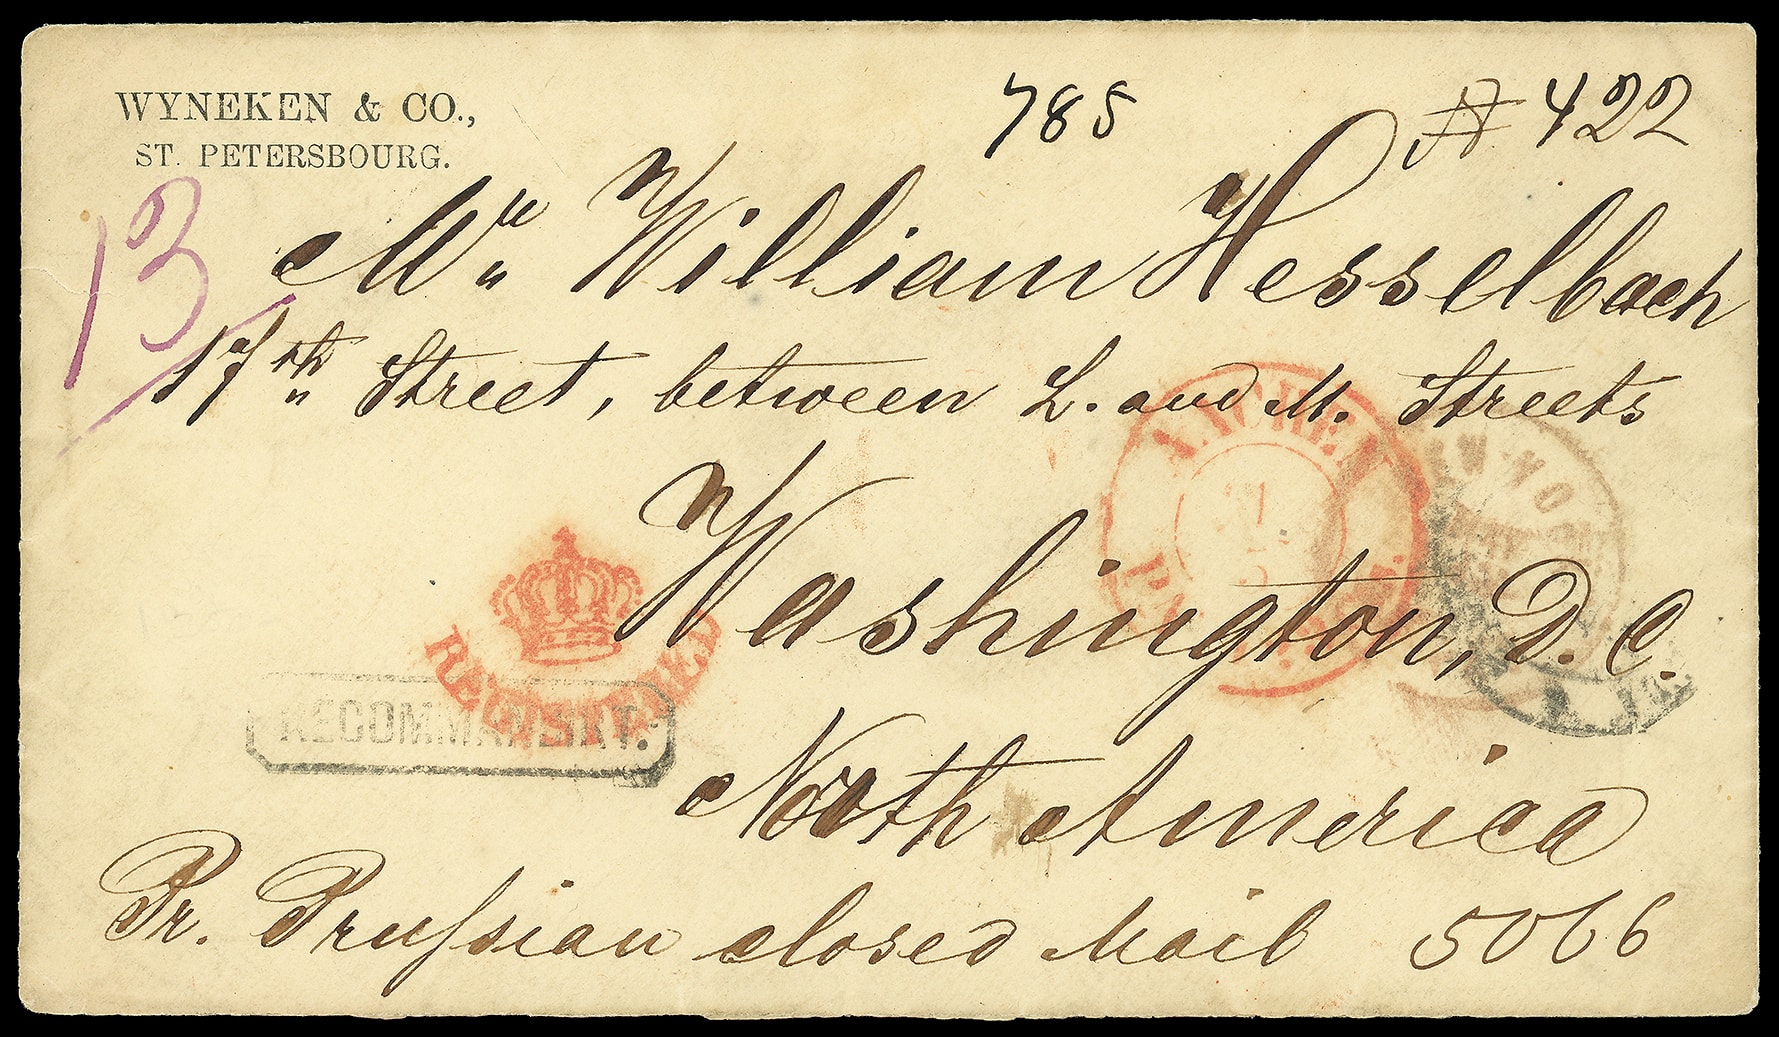 WYNEKEN & CO.,
ST. PETERSBOURG.
785
# 422
13
Mr. William Hesselbach
17th Street, between L. and M. Streets
Washington, D. C.
North America
Pr. Prufsian closed Mail 5066
AACHEN
REGISTERED
RECOMMANDIRT.